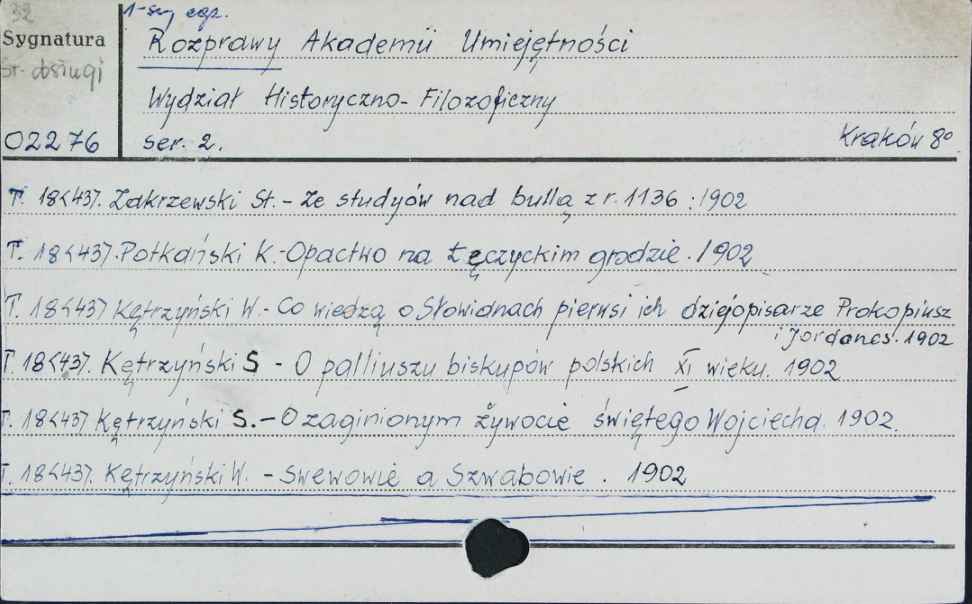 32
1-szy egz.
Sygnatura
Rozprawy Akademii Umiejętności
Wydział Historyczno-Filozoficzny
02276
ser. 2.
Kraków 8°
T. 18<43>. Zakrzewski St. - Ze studyów nad bullą z r. 1136 : 1902
T. 18<43>. Potkański K. - Opactwo na Łęczyckim grodzie. 1902
T. 18<43> Kętrzyński W. - Co wiedzą o Słowianach pierwsi ich dziejopisarze Prokopiusz
i Jordanes. 1902
T. 18<43>. Kętrzyński S - O palliuszu biskupów polskich XI wieku. 1902
T. 18<43> Kętrzyński S. - O zaginionym żywocie świętego Wojciecha. 1902.
T. 18<43>. Kętrzyński W. - Swewowie a Szwabowie. 1902